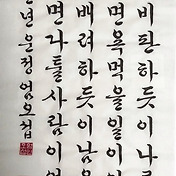 비판하듯이나
면욕먹을일이
배려하듯이남
면다툴사람이
년은정엄오섭